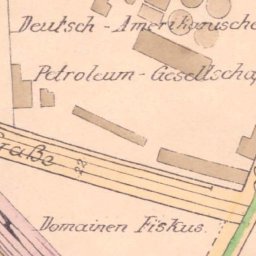 Deutsch - Amerikanische
Petroleum - Gesellscha
raße
22
Domainen Fiskus.